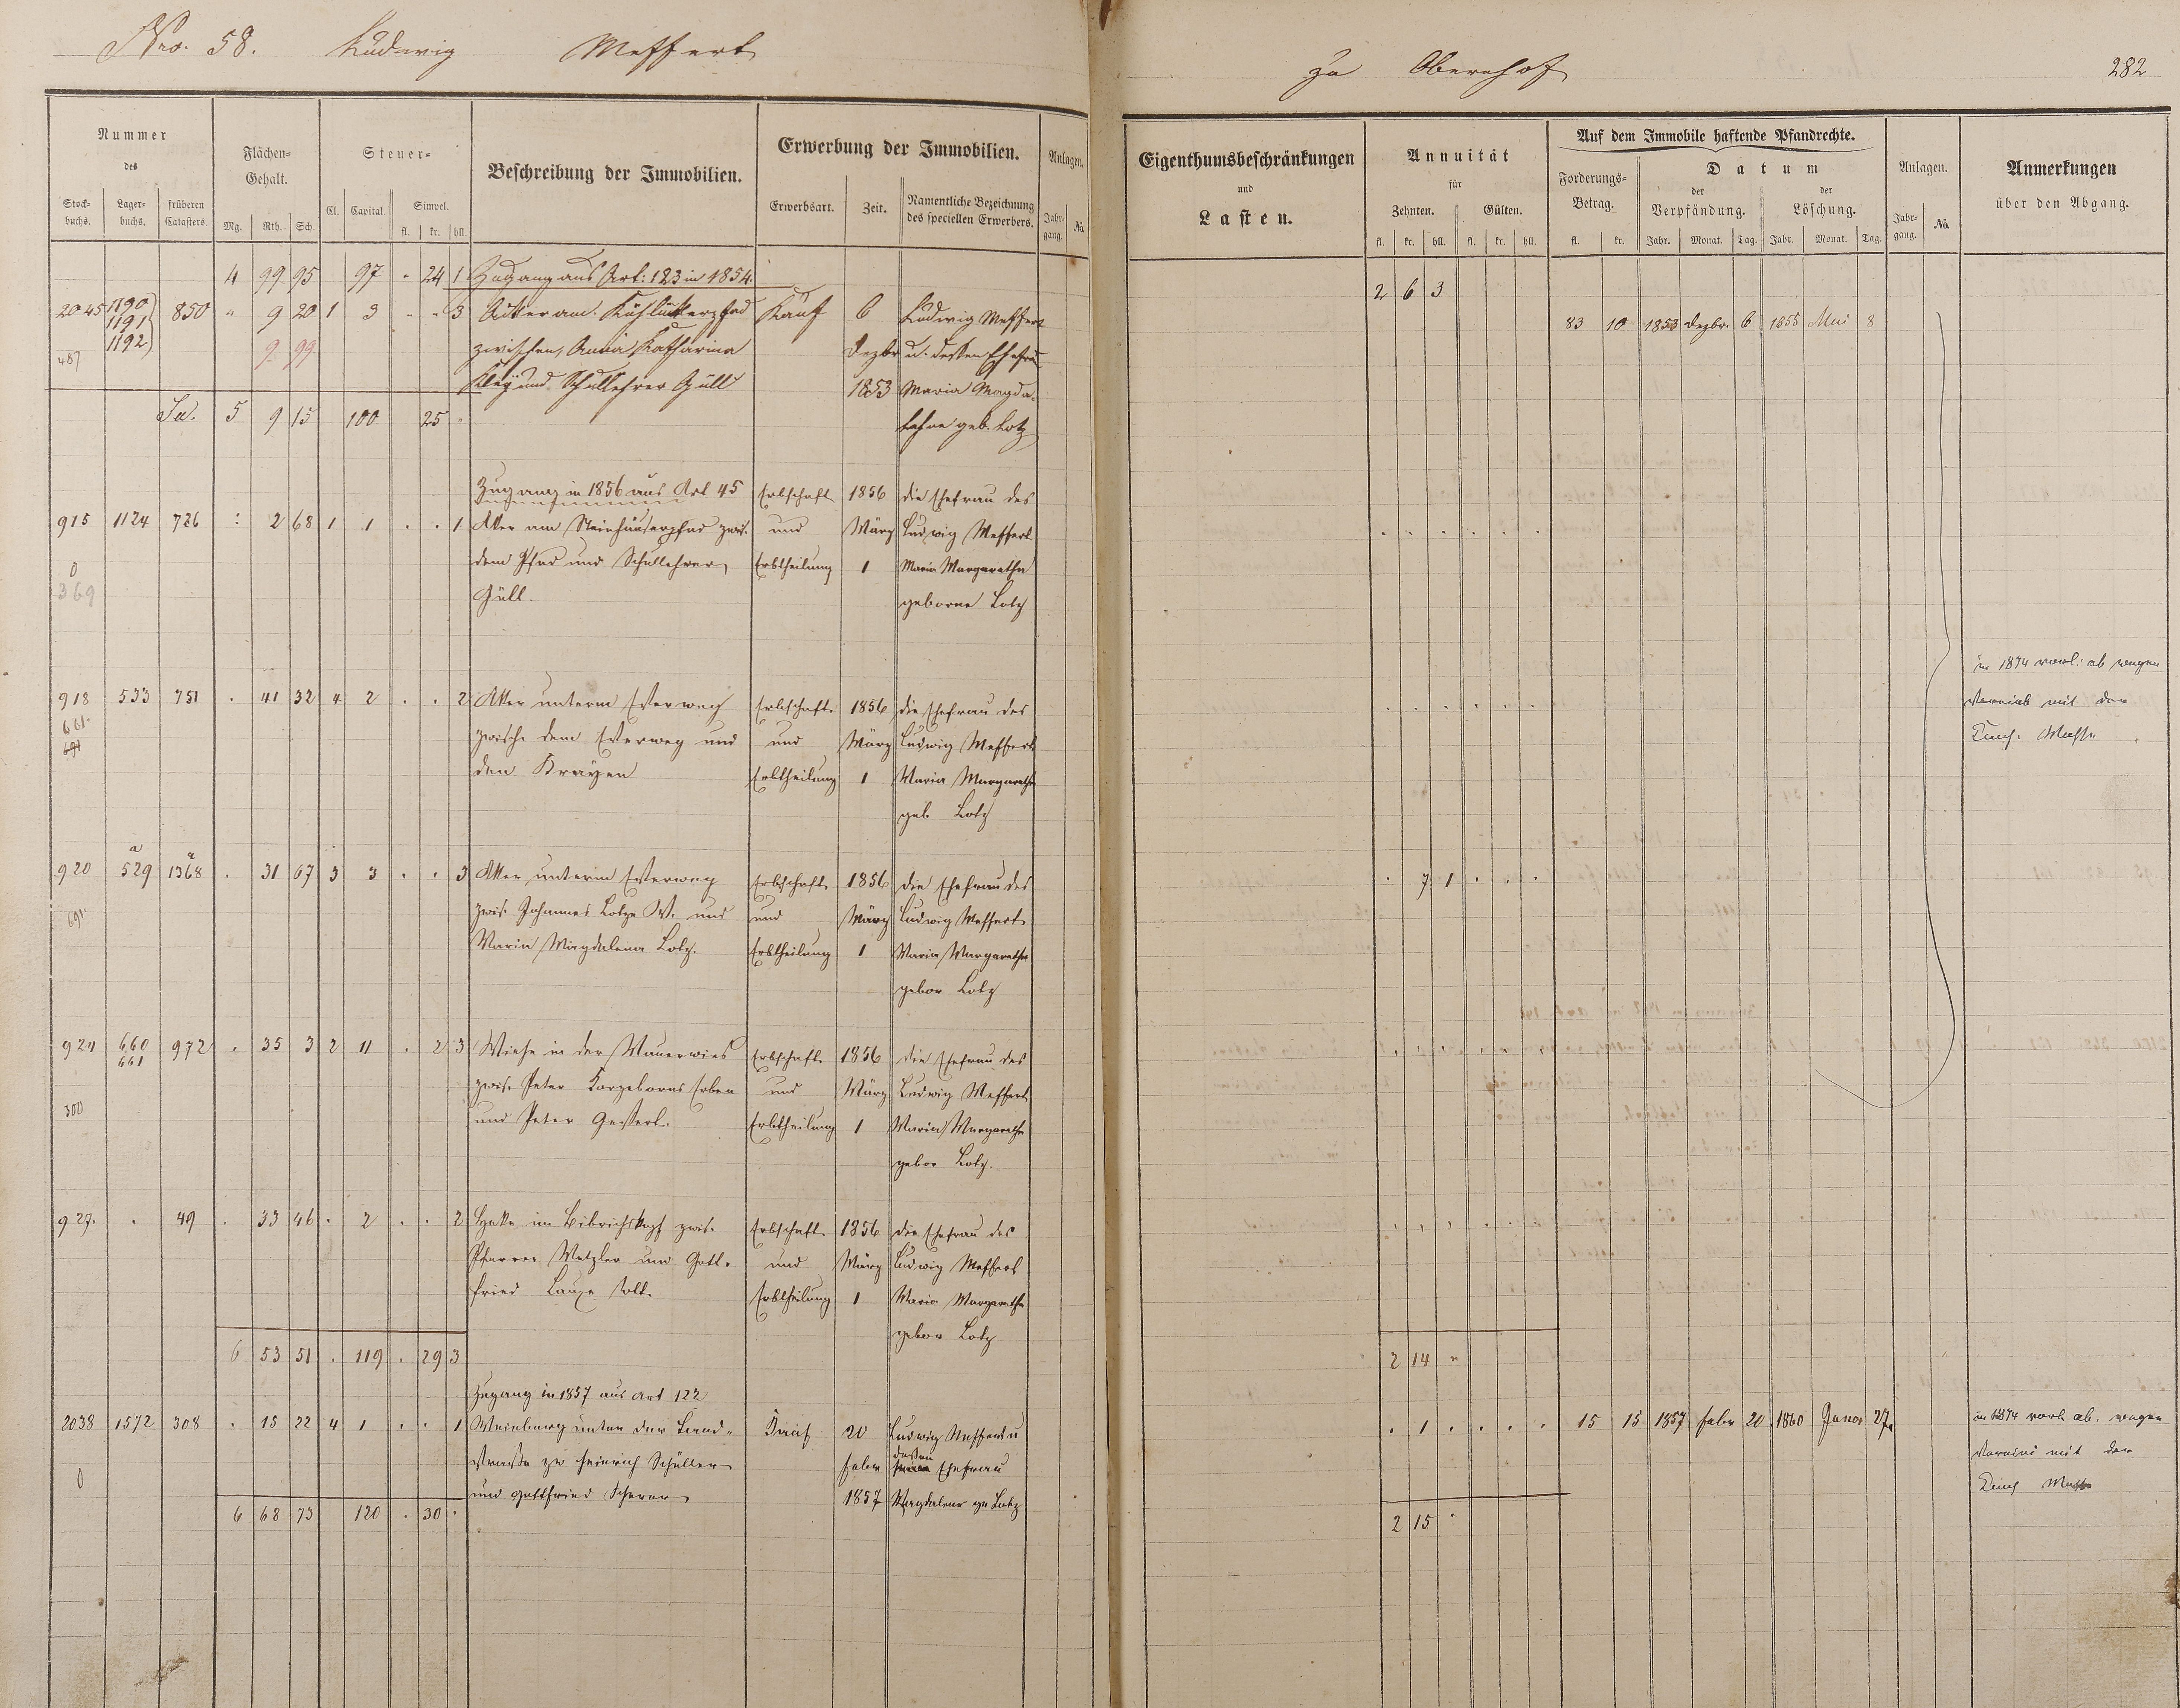 Nro. 58. Ludwig Meffert
zu Obernhof 282
Nummer des
Stockbuchs. Lagerbuchs. früheren Catasters.
Flächen-Gehalt.
Mg. Rth. Sch.
Steuer-
Cl. Capital. Simpel.
fl. kr. hll.
Beschreibung der Immobilien.
Erwerbung der Immobilien.
Erwerbsart. Zeit. Namentliche Bezeichnung des speciellen Erwerbers.
Anlagen.
Jahrgang. No.
Eigenthumsbeschränkungen
und
Lasten.
Annuität
für
Zehnten. Gülten.
fl. kr. hll. fl. kr. hll.
Auf dem Immobile haftende Pfandrechte.
Forderungs-Betrag.
fl. kr.
Datum
der Verpfändung. der Löschung.
Jahr. Monat. Tag. Jahr. Monat. Tag.
Anlagen.
Jahrgang. No.
Anmerkungen
über den Abgang.
4 99 95 97 - 24 1 Zugang aus Art: 123 in 1854.
2 6 3
2045 1190 850 " 9 20 1 3 - - 3 Acker am Kauf 6 Ludwig Meffert
83 10 1853 Dezbr. 6 1855 Mai 8
1191
1192 9 99 zwischen Anna Katharina Dezbr u. dessen Ehefrau
487
Kleÿ und Schullehrer Güll 1853 Maria Magda-
Sa. 5 9 15 100 25 "
lehne geb. Lotz
Zugang in 1856 aus Art 45 Erbschaft 1856 die Ehefrau des
915 1124 726 : 2 68 1 1 . . 1 Acker am Steinhäuserpfad zwis. und März Ludwig Meffert
0 dem Pfad und Schullehrer Erbtheilung 1 Maria Margaretha
369 Güll. geborne Lotz
in 1874 vorl: ab wegen
918 533 751 . 41 32 4 2 . . 2 Acker unterm Erbschaft 1856 die Ehefrau des
mit der
661
691 zwische dem und und März Ludwig Meffert
Masse
den Kraÿen Erbtheilung 1 Maria Margaretha
geb Lotz
920 a 529 a 1368 . 31 67 3 3 . . 3 Acker unterm Erbschaft 1856 die Ehefrau des
. 7 1 . . .
691 zwis. Johannes Lotze W. und und März Ludwig Meffert
Maria Magdalena Lotz. Erbtheilung 1 Maria Margaretha
gebor Lotz
924 660 972 . 35 3 2 11 . 2 3 Wiese in der Mauerwies Erbschaft 1856 die Ehefrau des
661
300 zwis. Peter Erben und März Ludwig Meffert
und Peter Erbtheilung 1 Maria Margaretha
gebor Lotz.
927. . 49 . 33 46 . 2 . . 2 Hecke im zwis. Erbschaft 1856 die Ehefrau des
Pfarrer Metzler und Gott- und März Ludwig Meffert
fried Erbtheilung 1 Maria Margaretha
gebor Lotz
6 53 51 . 119 . 29 3
2 14 "
Zugang in 1857 aus Art 122
2038 1572 308 . 15 22 4 1 . . 1 Weinberg unter der Land- Kauf 20 Ludwig Meffert u
. 1 . . . . 15 15 1857 Febr 20 1860 Januar 27.
in 1874 vorl. ab. wegen
straße zw Heinrich Schüller Febr dessen Ehefrau
mit der
0 und Gottfried Scherer 1857 Magdalene ge Lotz
Masse
6 68 73 120 . 30 .
2 15 "